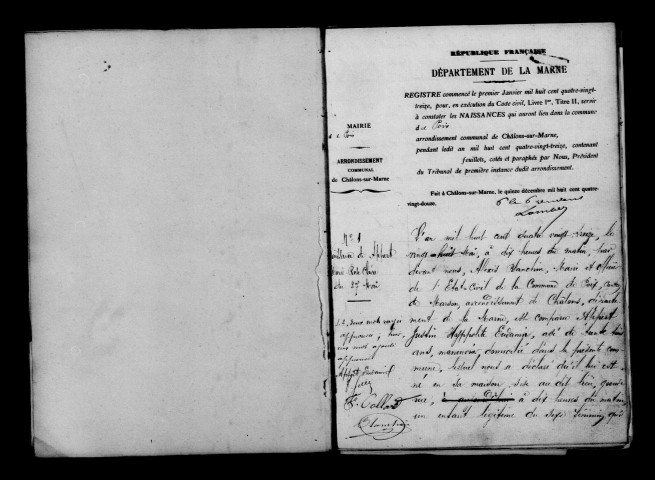 RÉPUBLIQUE FRANÇAISE
DÉPARTEMENT DE LA MARNE
REGISTRE commencé le premier Janvier mil huit cent quatre-vingt-
treize, pour, en exécution du Code civil, Livre Ier, Titre II, servir
à constater les NAISSANCES qui auront lieu dans la commune
de Poix
arrondissement communal de Châlons-sur-Marne,
pendant ledit an mil huit cent quatre-vingt-treize, contenant
feuillets, cotés et paraphés par Nous, Président
du Tribunal de première instance dudit arrondissement.
Fait à Châlons-sur-Marne, le quinze décembre mil huit cent quatre-
vingt-douze.
MAIRIE
de Poix
ARRONDISSEMENT
COMMUNAL
de Châlons-sur-Marne
No 1
Appert
du 27 Mai
L'an mil huit cent quatre vingt treize, le
vingt huit Mai, à dix heures du matin, par
devant nous, Alexis Blanchin, Maire et officier
de l'Etat Civil de la Commune de Poix, canton
de Marson, arrondissement de Châlons, départe
ment de la Marne, est comparu Appert
Justin Hippolyte Eudamis, âgé de trente
ans, manouvrier, domicilié dans la présente com
mune, lequel nous a déclaré qu'il lui est
né en sa maison, sise au dit lieu, grande
rue, à dix heures du matin
un enfant légitime du sexe féminin, qu'il
F. Collard
Blanchin